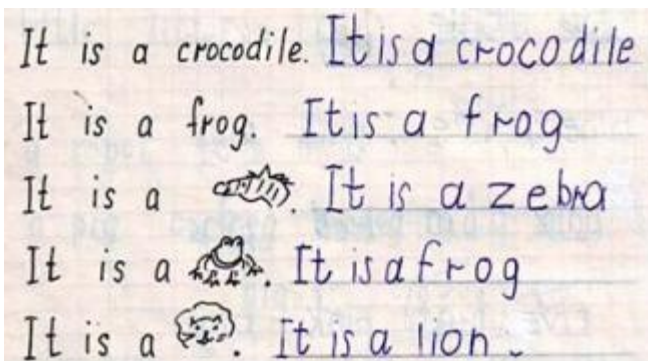 It is a crocodile. It is a crocodile
It is a frog. It is a frog
It is a . It is a zebra
It is a . It is a frog
It is a . It is a lion.